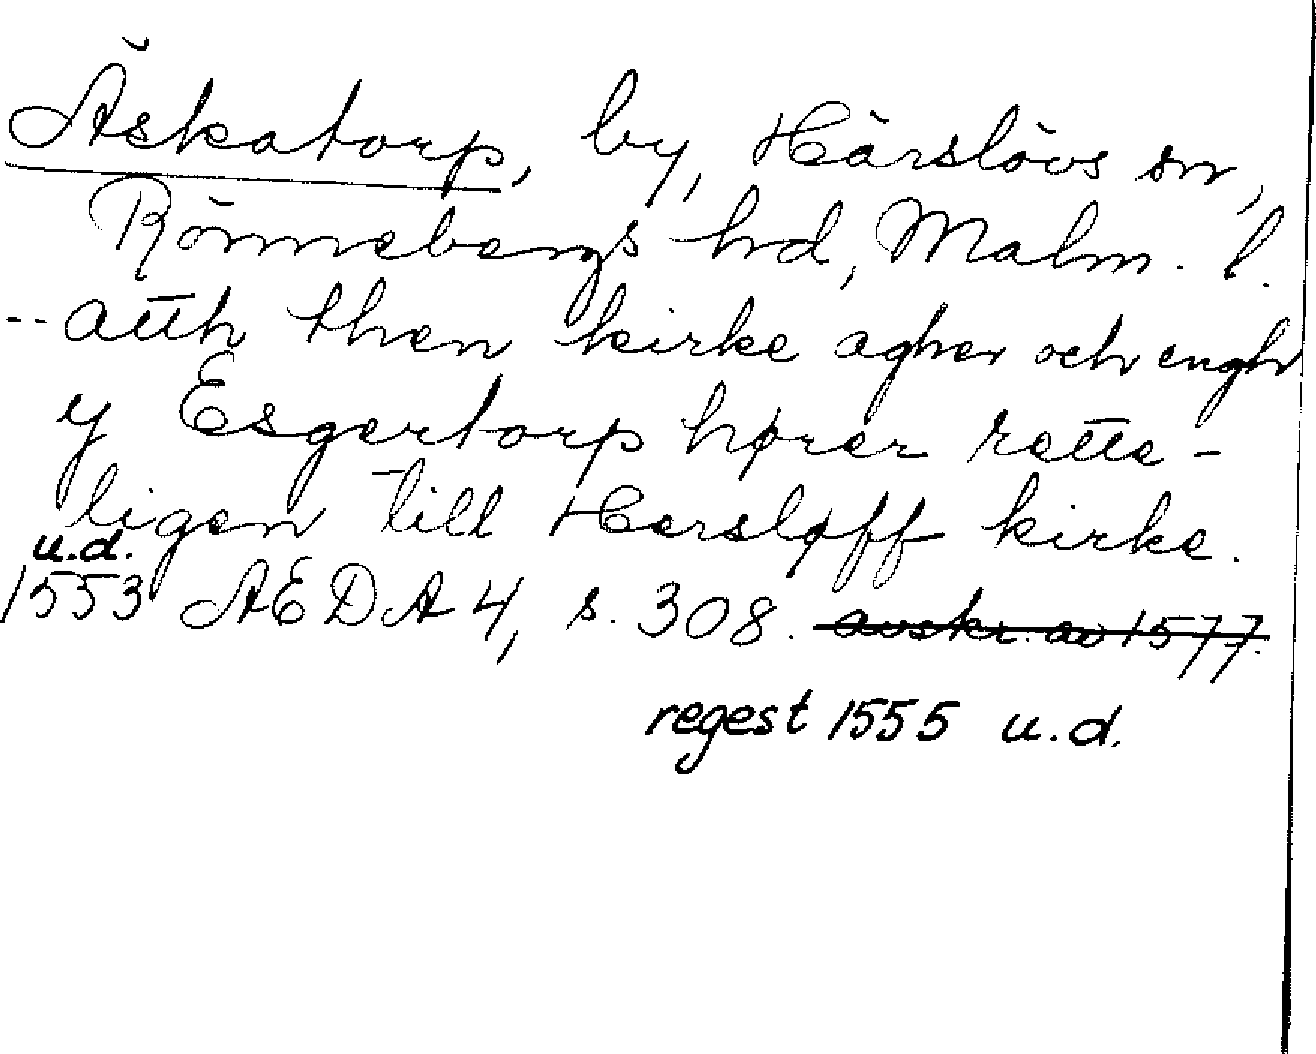 Äskatorp, by, Härslövs sn,
Rönnebergs hd, Malm. l.
-- atth then kirke agher och engh
y Esgertorp hører rette-
ligen till Hersløff kirke.
u.d.
1553 AEDA 4, s. 308. avskr. av 1577.
regest 1555 u.d.